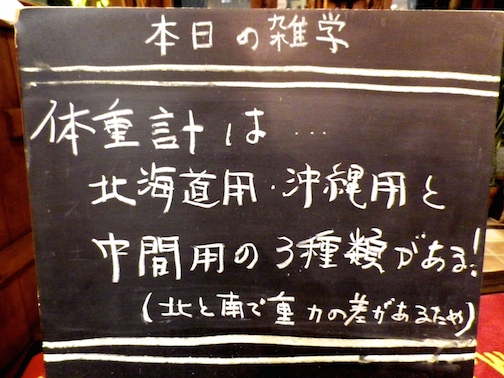 本日の雑学
体重計は…
北海道用・沖縄用と
中間用の3種類がある!
(北と南で重力の差があるため)